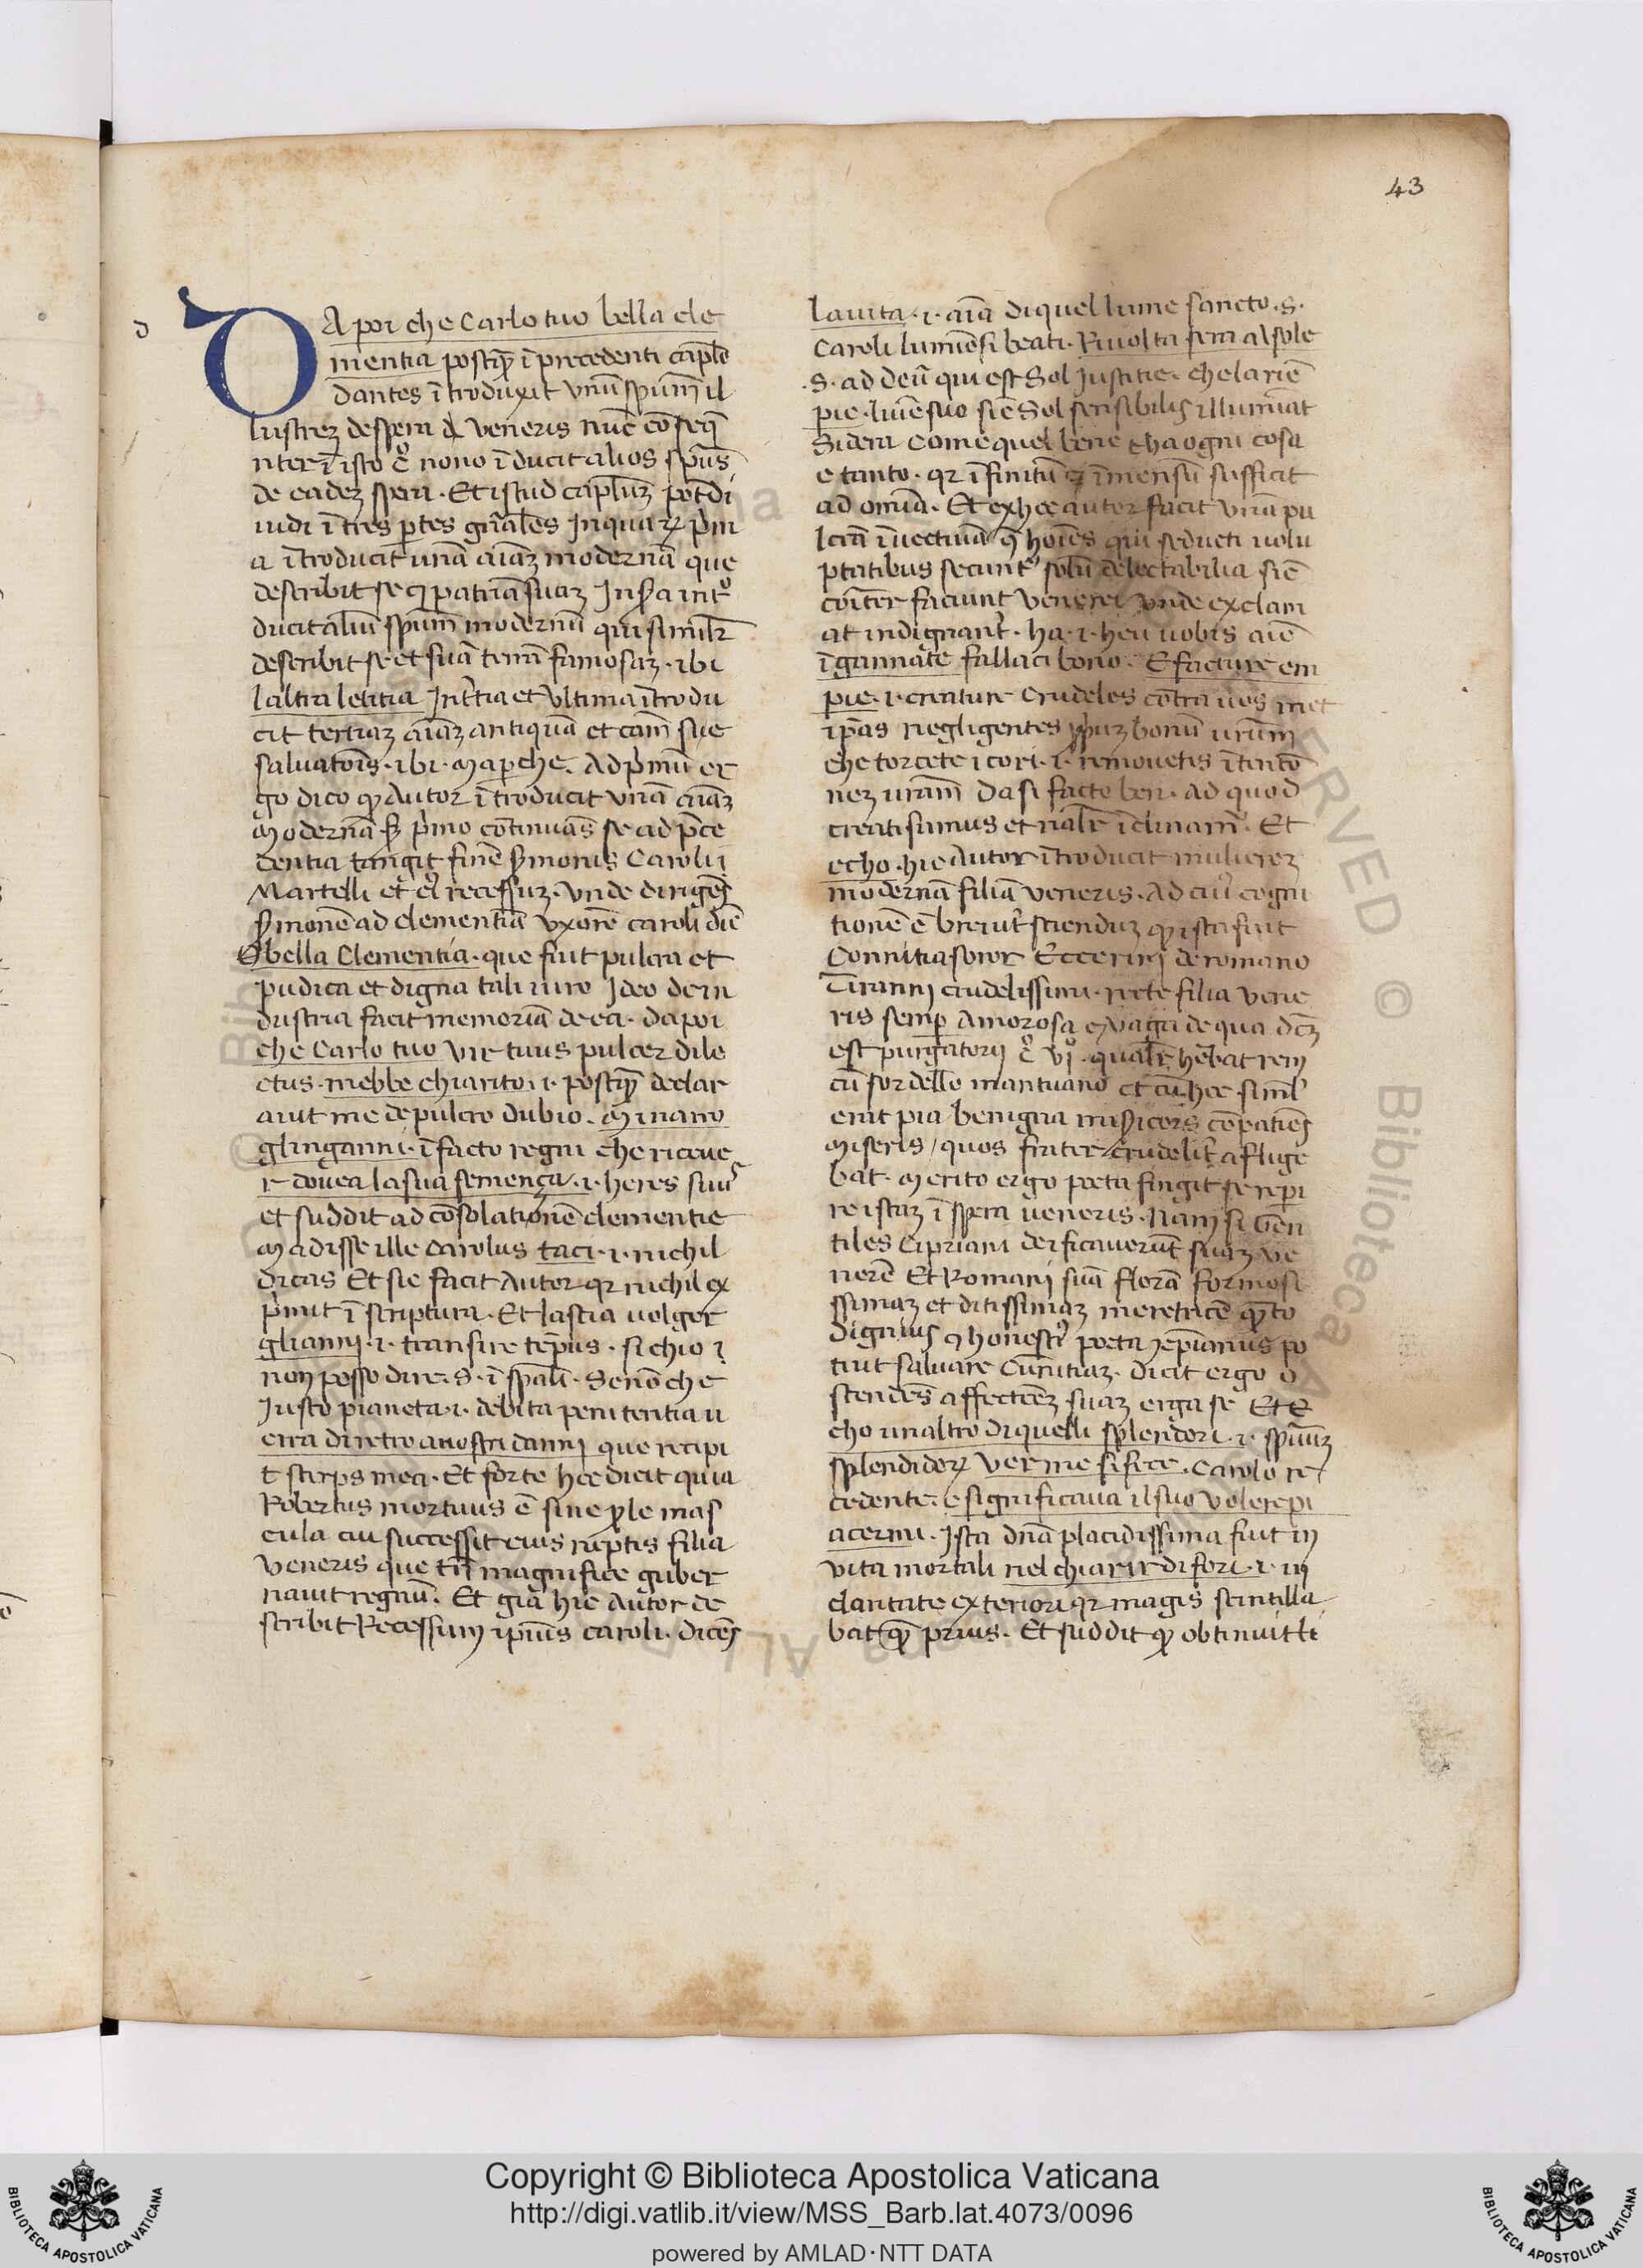 43
d
DA poi che Carlo tuo bella cle
mentia postq̄ ī precedenti capl̄o
dantes ītroduxit vnū spūm il
lustrez de spera Veneris nūc cōseq̄
nter ī isto c̊ nono īducit alios spūs
de eadez spera. Et istud capl̄uz pōt di
uidi ī tres ꝑtes gn̄ales Inquaꝝ pͥm
a ītroducit unā aīaz modernā que
describit se ⁊ patriā suaz In sͨa intͦ
ducit aliū spūm modernū qui similr̄
describit se et suā terrā famosaz. ibi
laltra letitia In tͥtia et Vltima ītrodu
cit tertiaz aīaz antiquā et cām sue
saluatōis. ibi. Ma perche. Ad pͥmū er
go dico ꝙ Autor ītroducit vnā aīaz
Modernā. Sꝫ pͥmo cōtinuās se ad p̄ce
dentia tangit finē sermonis Caroli
Martelli et eiꝰ recessuz. Vnde dirigēs
sermonē ad clementiā vxorē caroli diē
O bella Clementia. que fuit pulcra et
pudica et digna tali uiro Ideo de in
dustria facit memoriā de ea. da poi
che Carlo tuo vir tuus pulcer dile
ctus. mebbe chiarito. i. postq̄ declar
auit me de pulcro dubio. Mi narro
glinganni. ī facto regni che riceue
r dovea la sua semença. i. heres suus
et suddit ad cōsolationē clementie
Ma disse ille Carolus taci. i. nichil
dicas Et sic facit Autor qꝛ nichil ex
pͥmit ī scriptura. Et lascia uolger
glianni. i. transire tēpus. si chio ⁊
non posso dire. S. ī spāli. Se nō che
Iusto pianeta. i. debita penitentia u
erra diretro anostri danni que recipi
t stirps mea. Et forte hec dicit quia
Robertus mortuus ē sine ꝓle mas
cula cui successit eius neptis filia
Veneris que tn̄ magnifice guber
nauit regnū. Et gia hic Autor de
scribit Recessum ipius caroli. dicēs
la uita. i. aīa di quel lume sancto. S.
Caroli luminōsi beati. Riuolta sera al sole
.S. ad deū qui est Sol Iustitie. che la riē
pie. luīe suo sic Sol sensibilis illuminat
Sidera Come quel bene cha ogni cosa
e tanto. qꝛ īfinitū ⁊ īmensū sufficit
ad omīa. Et ex hoc autor facit vnā pu
lcrā īuectiuā ꝯ hoīes qui seducti uolu
ptatibus secuntꝰ solū delectabilia sic
cōiter faciunt Venerei vnde exclam
at indignantr̄. ha. i. heu uobis aīe
īgannate fallaci bono. E facture em
pie. i. creature Crudeles cōtra uos met
ipas negligentes ꝓpuz bonū urūm
che torcete i cori. i. remouetis ītentō
nez uram̄ da si facto ben. ad quod
creati sumus et nal̄r īclinam̄. Et
echo. hic Autor ītroducit mulierez
modernā filiā Veneris. Ad cuiꝰ cogni
tionē ē breuit̄ sciendaz ꝙ ista fuit
Connitia soror Eccerini de romano
Tiranni crudelissimi. recte filia vene
ris semp̄ Amorosa ⁊ vaga de qua dc̄m
est purgatorii c̊ vjͦ. qualr̄ hēbat rem
cū sordello mantuano et cū hoc siml̄
erat pia benigna misericors cōpatiēs
Miseris, quos frater crudelit̄ aflige
bat. Merito ergo poeta fingit se reperi
re istaz ī spera ueneris. Nam si Gen
tiles Cipriani deificauerūt suaz ve
nerē Et Romani suā florā formosi
ssimaz et ditissimaz meretricē qn̄to
dignius ⁊ honestiꝰ poeta xp̄ianus po
tuit saluare Cunitiaz. dicit ergo o
stendēs affectūz suaz erga se Et E
cho unaltro di quelli splendori. i. spūuz
splendidoꝝ ver me si fece. Carolo re
cedente. e significaua il suo voler epi
acermi. Ista dn̄a placidissima fuit in
vita mortali nel chiarir di fori. i. in
claritate exteriori qꝛ magis scintilla
bat q̄ prius. Et suddit ꝙ obtinuit li
Copyright © Biblioteca Apostolica Vaticana
http://digi.vatlib.it/view/MSS_Barb.lat.4073/0096
powered by AMLAD·NTT DATA
BIBLIOTECA APOSTOLICA VATICANA
BIBLIOTECA APOSTOLICA VATICANA